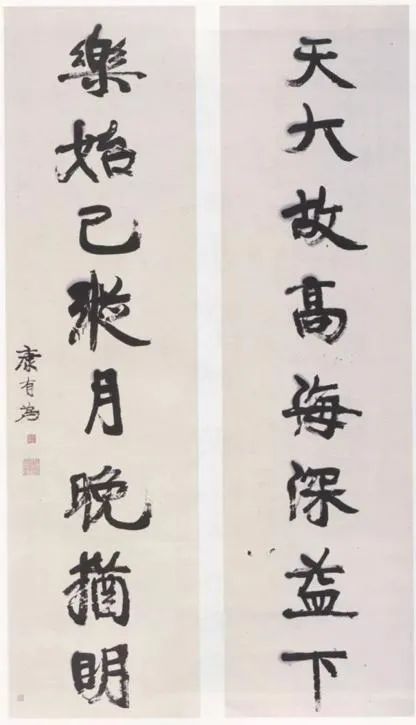 天大故高海深益下
樂始已縱月晚猶明
康有為